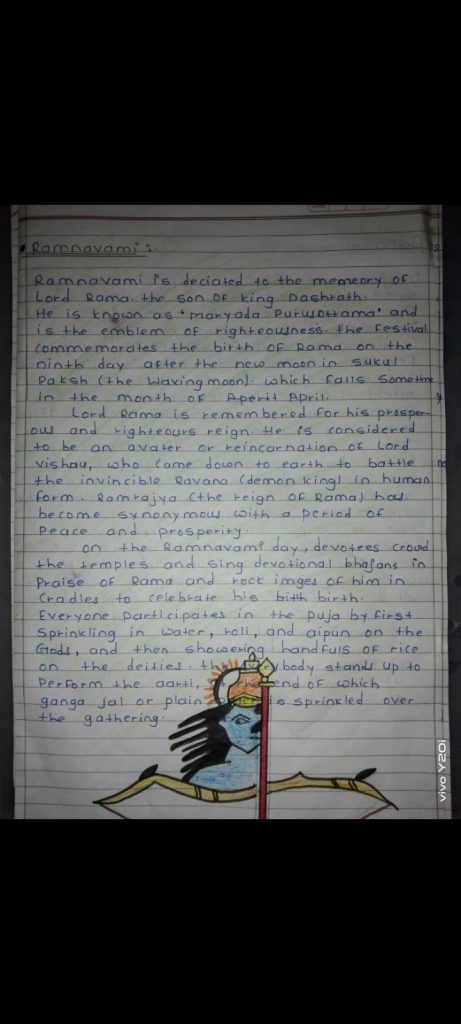 • Ramnavami :.
Ramnavami is deciated to the memeory of
Lord Rama. the son of king Dashrath.
He is known as "maryada Purusottama" and
is the emblem of righteousness. the festival
commemorates the birth of Rama on the
ninth day after the new moon in sukul
Paksh (the waxing moon). which falls sometime
in the month of Aperil April.
Lord Rama is remembered for his prosper-
ous and righteours reign. He is considered
to be an avater or reincarnation of Lord
vishau, who came down to earth to battle
the invincible Ravana (demon king) in human
form. Ramrajya (the reign of Rama) has
become synonymous with a period of
Peace and prosperity.
on the Ramnavami day, devotees crowd
the temples and sing devotional bhajans in
Praise of Rama and rock imges of him in
cradles to celebrate his bitth birth.
Everyone participates in the puja by first
sprinkling in water, roli, and aipun on the
Gods, and then showering handfuls of rice
on the deities. the ybody stands up to
Perform the aarti, the end of which
ganga jal or plain is sprinkled over
the gathering.
vivo Y20i